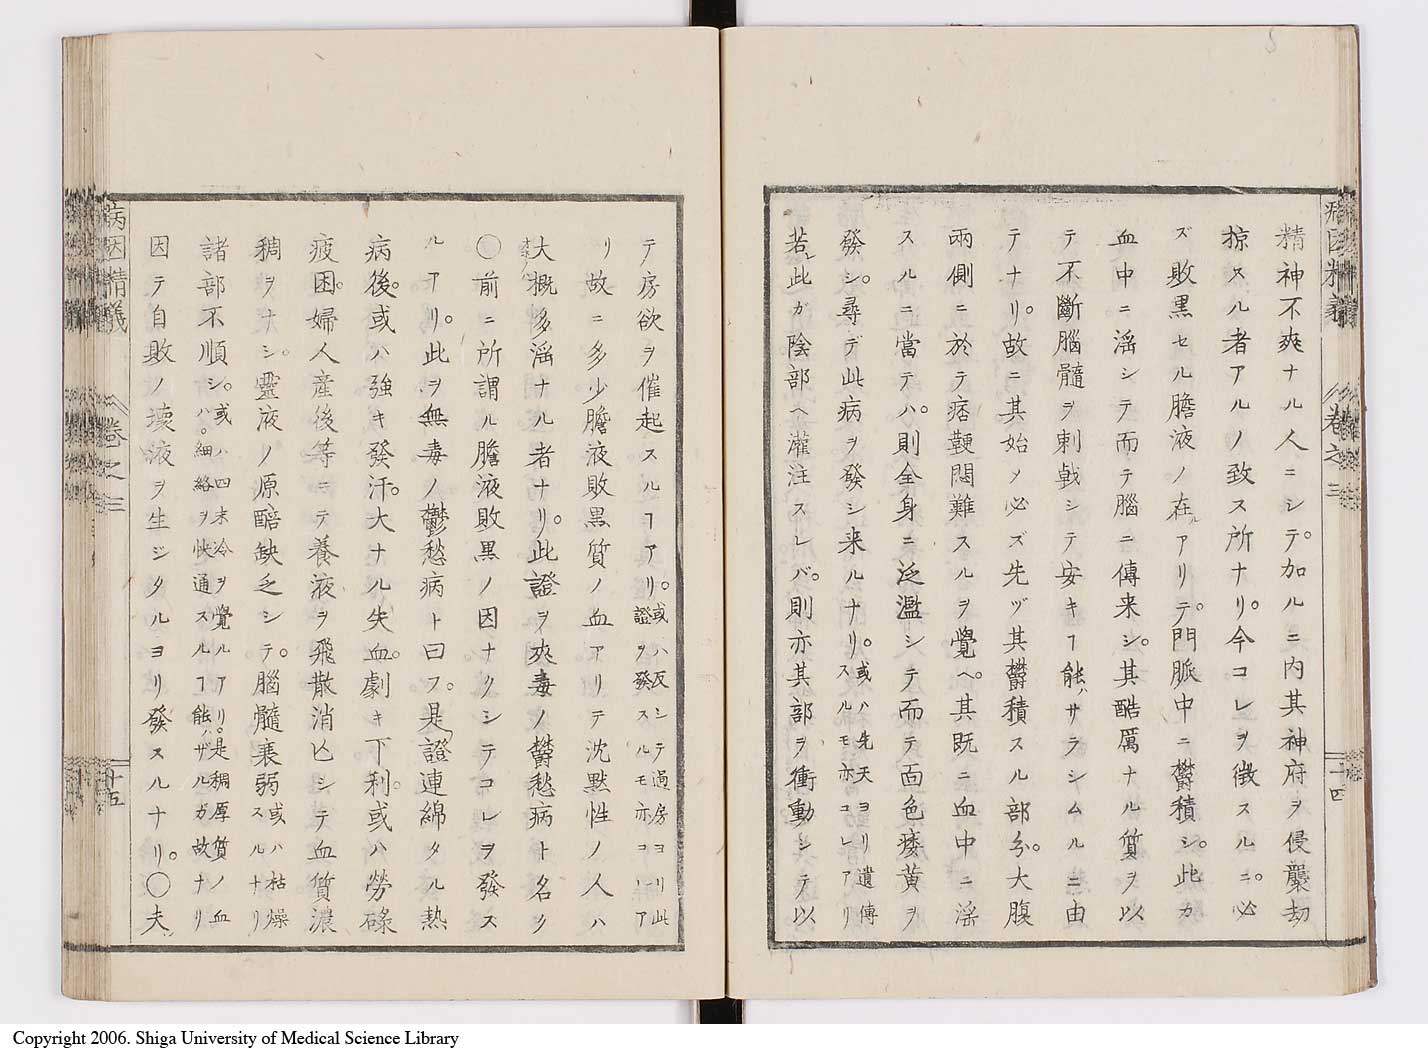 病因精義 卷之三 十四
精神不爽ナル人ニシテ。加ルニ内其神府ヲ侵襲劫
掠スル者アルノ致ス所ナリ。今コレヲ徴スルニ。必
ズ敗黒セル膽液ノ在ルアリテ。門脈中ニ欝積シ。此カ
血中ニ滛シテ而テ腦ニ傳来シ。其酷厲ナル質ヲ以
テ不斷腦髓ヲ刺戟シテ安キヿ能ハサラシムルニ由
テナリ。故ニ其始メ必ズ先ヅ其欝積スル部分。大腹
兩側ニ於テ痞鞕悶難スルヲ覺ヘ。其既ニ血中ニ滛
スルニ當テハ。則全身ニ泛濫シテ而テ面色痿黄ヲ
發シ。尋デ此病ヲ發シ来ルナリ。或ハ先天ヨリ遺傳スルモ亦コレアリ
若シ此ガ陰部ヘ灌注スレバ。則亦其部ヲ衝動シテ以
テ房欲ヲ催起スルヿアリ。或ハ反シテ過房ヨリ此證ヲ發スルモ亦コレア
リ故ニ多少膽液敗黒質ノ血アリテ沈黙性ノ人ハ
大概多滛ナル者ナリ。此證ヲ夾毒ノ欝愁病ト名ク
〇前ニ所謂ル膽液敗黒ノ因ナクシテコレヲ發ス
ルアリ。此ヲ無毒ノ鬱愁病ト曰フ。是證連綿タル熱
病後。或ハ強キ發汗。大ナル失血。劇キ下利。或ハ勞碌
疲困。婦人産後等ニテ養液ヲ飛散消亡シテ血質濃
稠ヲナシ。靈液ノ原醅缺乏シテ。腦髓衰弱或ハ枯燥スルナリ
諸部不順シ。或ハ四末冷ヲ覺ルアリ。是稠厚質ノ血ハ。細絡ヲ快通スルヿ能ハザルガ故ナリ
因テ自敗ノ壊液ヲ生ジタルヨリ發スルナリ。〇夫
病因精義 卷之三 十五
Copyright 2006. Shiga University of Medical Science Library